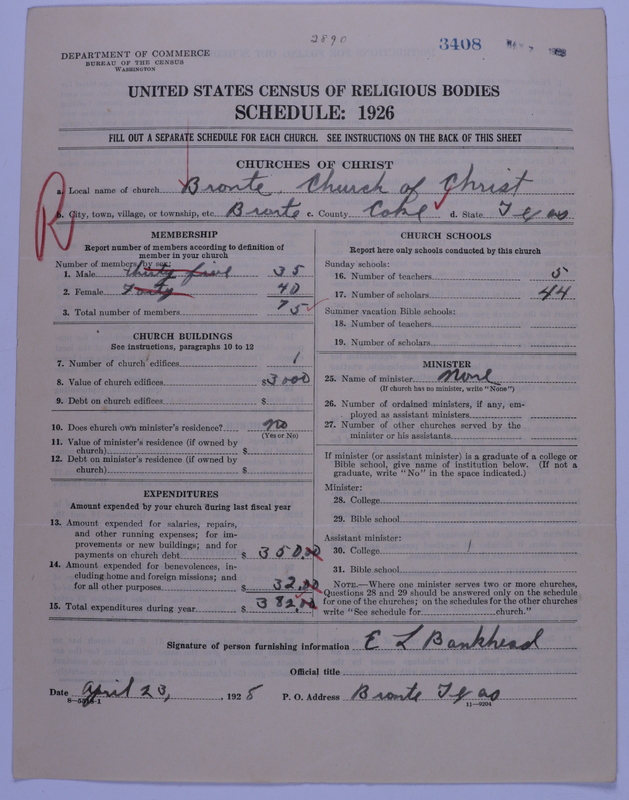 2890
3408
DEPARTMENT OF COMMERCE
BUREAU OF THE CENSUS
WASHINGTON
UNITED STATES CENSUS OF RELIGIOUS BODIES
SCHEDULE: 1926
FILL OUT A SEPARATE SCHEDULE FOR EACH CHURCH. SEE INSTRUCTIONS ON THE BACK OF THIS SHEET
CHURCHES OF CHRIST
R
a. Local name of church Bronte Church of Christ
b. City, town, village, or township, etc. Bronte c. County Coke d. State Texas
MEMBERSHIP
Report number of members according to definition of
member in your church
Number of members by sex:
1. Male thirty five 35
2. Female Forty 40
3. Total number of members 75
CHURCH BUILDINGS
See instructions, paragraphs 10 to 12
7. Number of church edifices 1
8. Value of church edifices $3000
9. Debt on church edifices $
10. Does church own minister's residence? no
(Yes or No)
11. Value of minister's residence (if owned by
church) $
12. Debt on minister's residence (if owned by
church) $
EXPENDITURES
Amount expended by your church during last fiscal year
13. Amount expended for salaries, repairs,
and other running expenses; for im-
provements or new buildings; and for
payments on church debt $ 350.00
14. Amount expended for benevolences, in-
cluding home and foreign missions; and
for all other purposes $ 32.00
15. Total expenditures during year $ 382.00
CHURCH SCHOOLS
Report here only schools conducted by this church
Sunday schools:
16. Number of teachers 5
17. Number of scholars 44
Summer vacation Bible schools:
18. Number of teachers
19. Number of scholars
MINISTER
25. Name of minister None
(If church has no minister, write "None")
26. Number of ordained ministers, if any, em-
ployed as assistant ministers
27. Number of other churches served by the
minister or his assistants
If minister (or assistant minister) is a graduate of a college or
Bible school, give name of institution below. (If not a
graduate, write "No" in the space indicated.)
Minister:
28. College
29. Bible school
Assistant minister:
30. College
31. Bible school
NOTE.—Where one minister serves two or more churches,
Questions 28 and 29 should be answered only on the schedule
for one of the churches; on the schedules for the other churches
write "See schedule for church."
Signature of person furnishing information E L Bankhead
Official title
Date April 23, 1928 P. O. Address Bronte Texas
11—9204